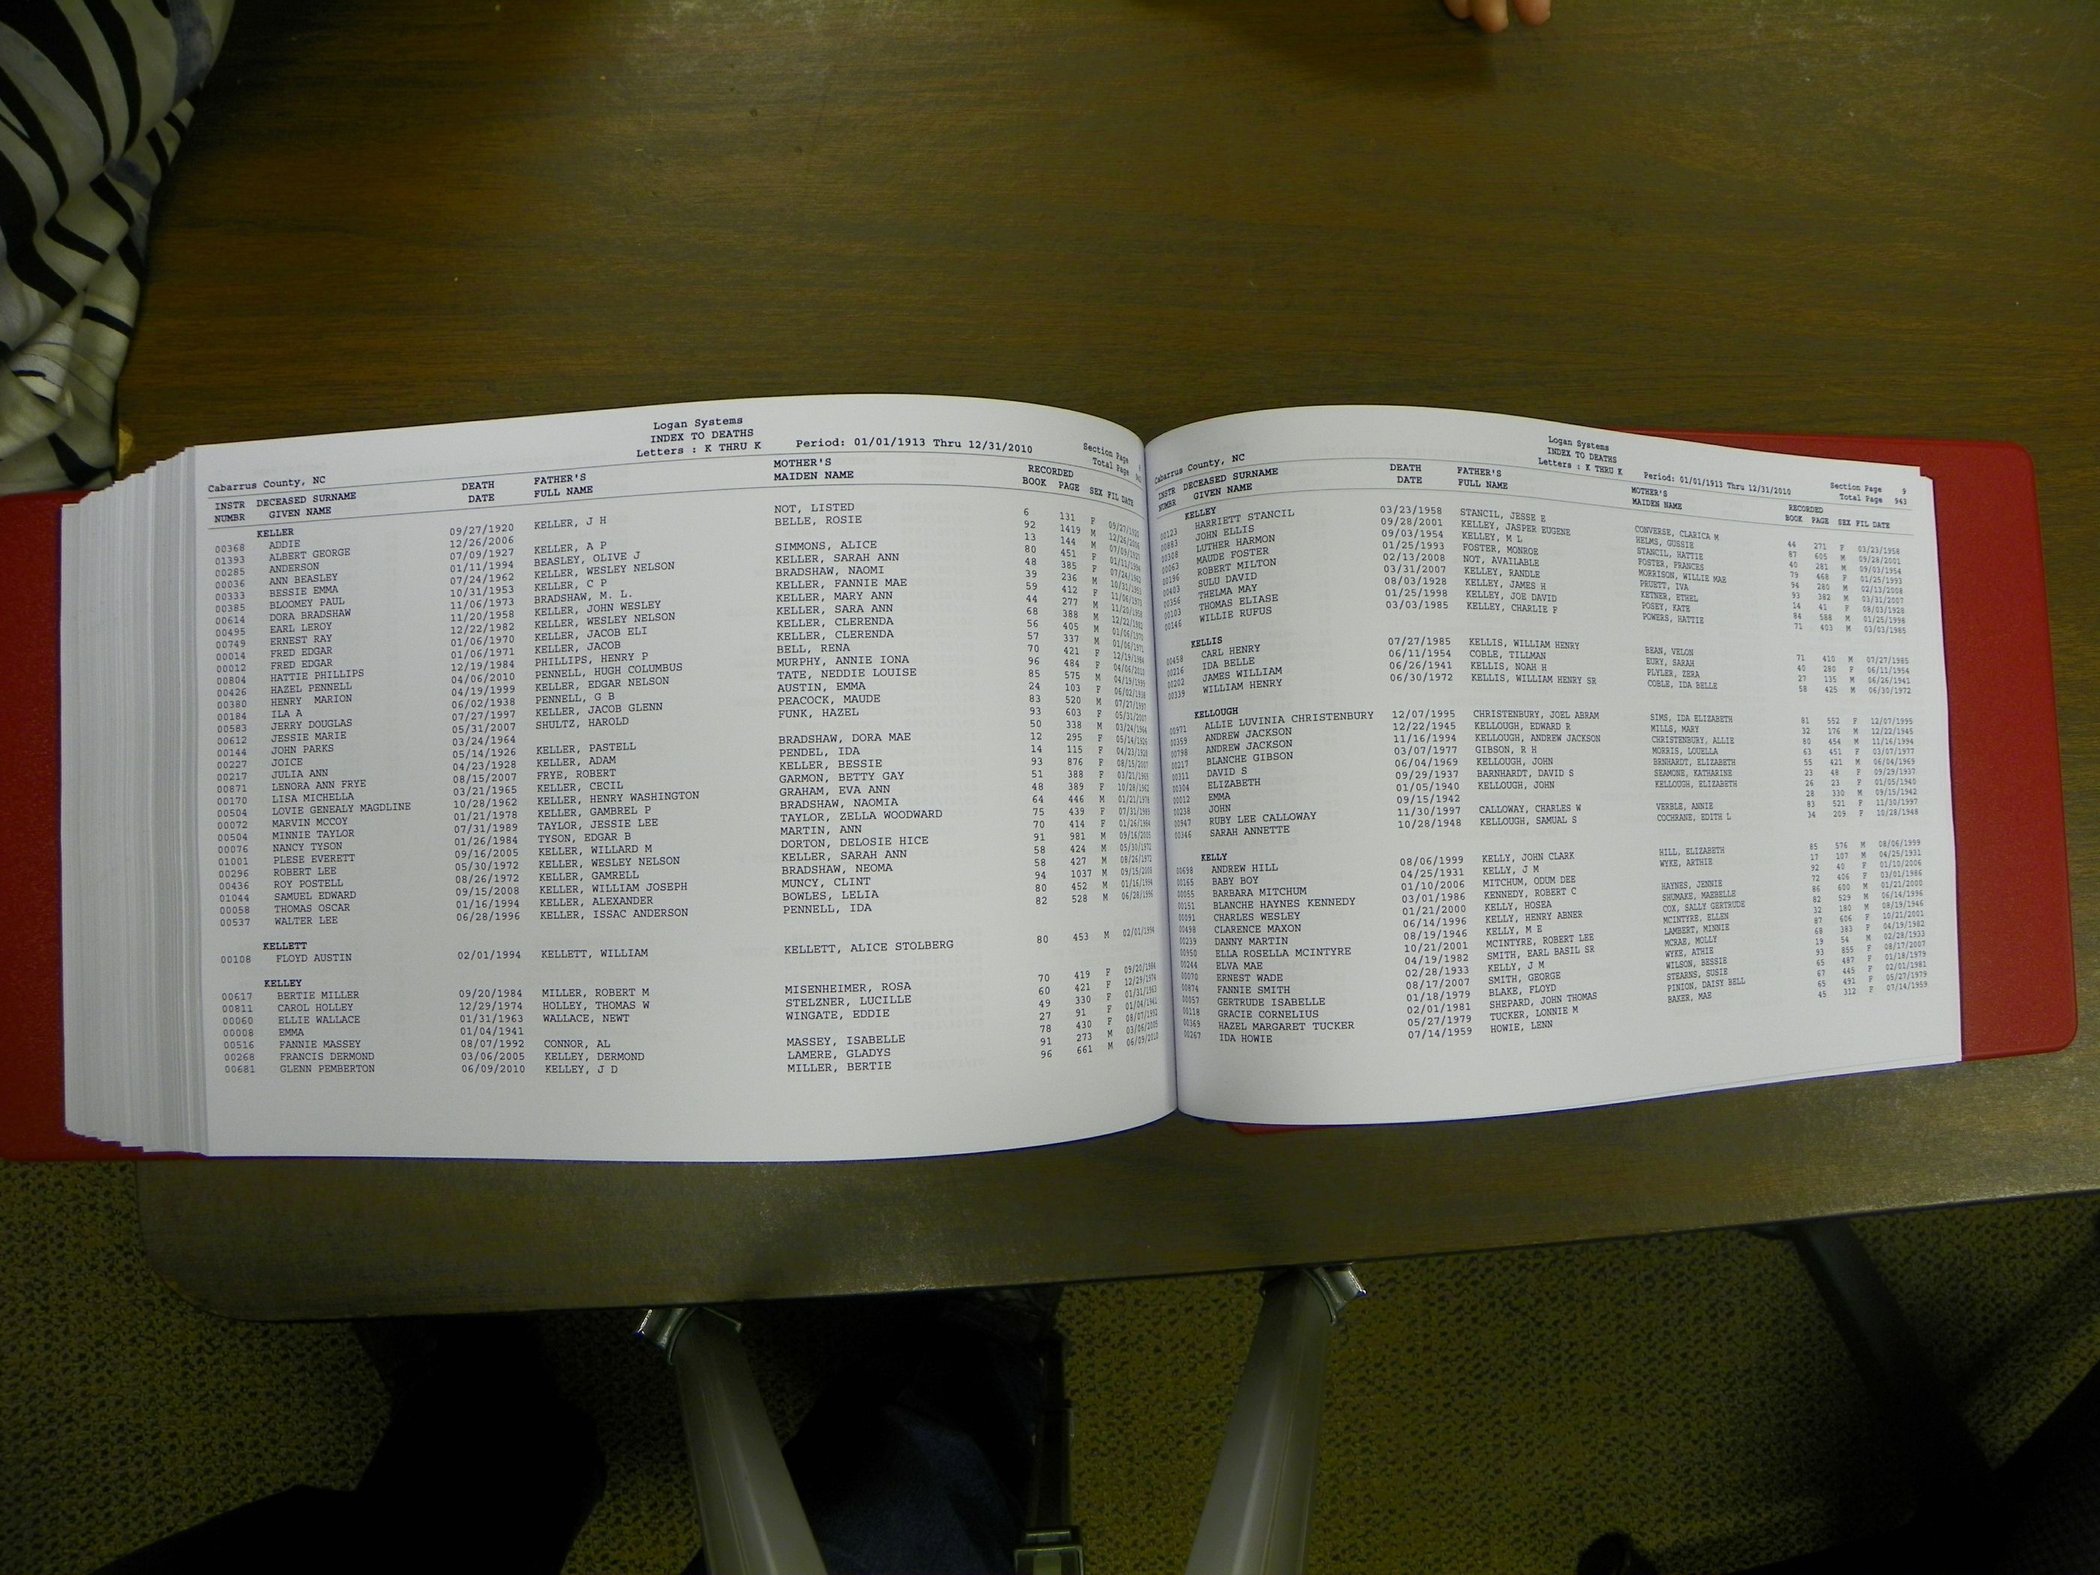 Logan Systems
INDEX TO DEATHS
Cabarrus County, NC Letters : K THRU K Period: 01/01/1913 Thru 12/31/2010 Section Page Total Page
INSTR NUMBR DECEASED SURNAME GIVEN NAME DEATH DATE FATHER'S FULL NAME MOTHER'S MAIDEN NAME RECORDED BOOK PAGE SEX FIL DATE
KELLER
00368 ADDIE 09/27/1920 KELLER, J H NOT, LISTED 6 131 F 09/27/1920
01393 ALBERT GEORGE 12/26/2006 BELLE, ROSIE 92 1419 M 12/26/2006
00285 ANDERSON 07/09/1927 KELLER, A P 13 144 M 07/09/1927
00036 ANN BEASLEY 01/11/1994 BEASLEY, OLIVE J SIMMONS, ALICE 80 451 F 01/11/1994
00333 BESSIE EMMA 07/24/1962 KELLER, WESLEY NELSON KELLER, SARAH ANN 48 385 F 07/24/1962
00385 BLOOMEY PAUL 10/31/1953 KELLER, C P BRADSHAW, NAOMI 39 236 M 10/31/1953
00614 DORA BRADSHAW 11/06/1973 BRADSHAW, M. L. KELLER, FANNIE MAE 59 412 F 11/06/1973
00495 EARL LEROY 11/20/1958 KELLER, JOHN WESLEY KELLER, MARY ANN 44 277 M 11/20/1958
00749 ERNEST RAY 12/22/1982 KELLER, WESLEY NELSON KELLER, SARA ANN 68 388 M 12/22/1982
00014 FRED EDGAR 01/06/1970 KELLER, JACOB ELI KELLER, CLERENDA 56 405 M 01/06/1970
00012 FRED EDGAR 01/06/1971 KELLER, JACOB KELLER, CLERENDA 57 337 M 01/06/1971
00804 HATTIE PHILLIPS 12/19/1984 PHILLIPS, HENRY P BELL, RENA 70 421 F 12/19/1984
00426 HAZEL PENNELL 04/06/2010 PENNELL, HUGH COLUMBUS MURPHY, ANNIE IONA 96 484 F 04/06/2010
00380 HENRY MARION 04/19/1999 KELLER, EDGAR NELSON TATE, NEDDIE LOUISE 85 575 M 04/19/1999
00184 ILA A 06/02/1938 PENNELL, G B AUSTIN, EMMA 24 103 F 06/02/1938
00583 JERRY DOUGLAS 07/27/1997 KELLER, JACOB GLENN PEACOCK, MAUDE 83 520 M 07/27/1997
00612 JESSIE MARIE 05/31/2007 SHULTZ, HAROLD FUNK, HAZEL 93 603 F 05/31/2007
00144 JOHN PARKS 03/24/1964 50 338 M 03/24/1964
00227 JOICE 05/14/1926 KELLER, PASTELL BRADSHAW, DORA MAE 12 295 F 05/14/1926
00217 JULIA ANN 04/23/1928 KELLER, ADAM PENDEL, IDA 14 115 F 04/23/1928
00871 LENORA ANN FRYE 08/15/2007 FRYE, ROBERT KELLER, BESSIE 93 876 F 08/15/2007
00170 LISA MICHELLA 03/21/1965 KELLER, CECIL GARMON, BETTY GAY 51 388 F 03/21/1965
00504 LOVIE GENEALY MAGDLINE 10/28/1962 KELLER, HENRY WASHINGTON GRAHAM, EVA ANN 48 389 F 10/28/1962
00072 MARVIN MCCOY 01/21/1978 KELLER, GAMBREL P BRADSHAW, NAOMIA 64 446 M 01/21/1978
00504 MINNIE TAYLOR 07/31/1989 TAYLOR, JESSIE LEE TAYLOR, ZELLA WOODWARD 75 439 F 07/31/1989
00076 NANCY TYSON 01/26/1984 TYSON, EDGAR B MARTIN, ANN 70 414 F 01/26/1984
01001 PLESE EVERETT 09/16/2005 KELLER, WILLARD M DORTON, DELOSIE HICE 91 981 M 09/16/2005
00296 ROBERT LEE 05/30/1972 KELLER, WESLEY NELSON KELLER, SARAH ANN 58 424 M 05/30/1972
00436 ROY POSTELL 08/26/1972 KELLER, GAMRELL BRADSHAW, NEOMA 58 427 M 08/26/1972
01044 SAMUEL EDWARD 09/15/2008 KELLER, WILLIAM JOSEPH MUNCY, CLINT 94 1037 M 09/15/2008
00058 THOMAS OSCAR 01/16/1994 KELLER, ALEXANDER BOWLES, LELIA 80 452 M 01/16/1994
00537 WALTER LEE 06/28/1996 KELLER, ISSAC ANDERSON PENNELL, IDA 82 528 M 06/28/1996
KELLETT
00108 FLOYD AUSTIN 02/01/1994 KELLETT, WILLIAM KELLETT, ALICE STOLBERG 80 453 M 02/01/1994
KELLEY
00617 BERTIE MILLER 09/20/1984 MILLER, ROBERT M MISENHEIMER, ROSA 70 419 F 09/20/1984
00811 CAROL HOLLEY 12/29/1974 HOLLEY, THOMAS W STELZNER, LUCILLE 60 421 F 12/29/1974
00060 ELLIE WALLACE 01/31/1963 WALLACE, NEWT WINGATE, EDDIE 49 330 F 01/31/1963
00008 EMMA 01/04/1941 27 91 F 01/04/1941
00516 FANNIE MASSEY 08/07/1992 CONNOR, AL MASSEY, ISABELLE 78 430 F 08/07/1992
00268 FRANCIS DERMOND 03/06/2005 KELLEY, DERMOND LAMERE, GLADYS 91 273 M 03/06/2005
00681 GLENN PEMBERTON 06/09/2010 KELLEY, J D MILLER, BERTIE 96 661 M 06/09/2010
Logan Systems
INDEX TO DEATHS
Cabarrus County, NC Letters : K THRU K Period: 01/01/1913 Thru 12/31/2010 Section Page 9 Total Page 943
INSTR NUMBR DECEASED SURNAME GIVEN NAME DEATH DATE FATHER'S FULL NAME MOTHER'S MAIDEN NAME RECORDED BOOK PAGE SEX FIL DATE
KELLEY
00123 HARRIETT STANCIL 03/23/1958 STANCIL, JESSE E CONVERSE, CLARICA M 44 271 F 03/23/1958
00883 JOHN ELLIS 09/28/2001 KELLEY, JASPER EUGENE HELMS, GUSSIE 87 605 M 09/28/2001
00308 LUTHER HARMON 09/03/1954 KELLEY, M L STANCIL, HATTIE 40 281 M 09/03/1954
00063 MAUDE FOSTER 01/25/1993 FOSTER, MONROE FOSTER, FRANCES 79 468 F 01/25/1993
00196 ROBERT MILTON 02/13/2008 NOT, AVAILABLE MORRISON, WILLIE MAE 94 280 M 02/13/2008
00403 SULU DAVID 03/31/2007 KELLEY, RANDLE PRUETT, IVA 93 382 M 03/31/2007
00356 THELMA MAY 08/03/1928 KELLEY, JAMES H KETNER, ETHEL 14 41 F 08/03/1928
00103 THOMAS ELIASE 01/25/1998 KELLEY, JOE DAVID POSEY, KATE 84 588 M 01/25/1998
00146 WILLIE RUFUS 03/03/1985 KELLEY, CHARLIE F POWERS, HATTIE 71 403 M 03/03/1985
KELLIS
00458 CARL HENRY 07/27/1985 KELLIS, WILLIAM HENRY BEAN, VELON 71 410 M 07/27/1985
00216 IDA BELLE 06/11/1954 COBLE, TILLMAN EURY, SARAH 40 280 F 06/11/1954
00202 JAMES WILLIAM 06/26/1941 KELLIS, NOAH H PLYLER, ZERA 27 135 M 06/26/1941
00339 WILLIAM HENRY 06/30/1972 KELLIS, WILLIAM HENRY SR COBLE, IDA BELLE 58 425 M 06/30/1972
KELLOUGH
00971 ALLIE LUVINIA CHRISTENBURY 12/07/1995 CHRISTENBURY, JOEL ABRAM SIMS, IDA ELIZABETH 81 552 F 12/07/1995
00359 ANDREW JACKSON 12/22/1945 KELLOUGH, EDWARD R MILLS, MARY 32 176 M 12/22/1945
00798 ANDREW JACKSON 11/16/1994 KELLOUGH, ANDREW JACKSON CHRISTENBURY, ALLIE 80 454 M 11/16/1994
00217 BLANCHE GIBSON 03/07/1977 GIBSON, R H MORRIS, LOUELLA 63 451 F 03/07/1977
00311 DAVID S 06/04/1969 KELLOUGH, JOHN BRNHARDT, ELIZABETH 55 421 M 06/04/1969
00304 ELIZABETH 09/29/1937 BARNHARDT, DAVID S SEAMONE, KATHARINE 23 48 F 09/29/1937
00012 EMMA 01/05/1940 KELLOUGH, JOHN KELLOUGH, ELIZABETH 26 23 F 01/05/1940
00238 JOHN 09/15/1942 28 330 M 09/15/1942
00947 RUBY LEE CALLOWAY 11/30/1997 CALLOWAY, CHARLES W VERBLE, ANNIE 83 521 F 11/10/1997
00346 SARAH ANNETTE 10/28/1948 KELLOUGH, SAMUAL S COCHRANE, EDITH L 34 209 F 10/28/1948
KELLY
00698 ANDREW HILL 08/06/1999 KELLY, JOHN CLARK HILL, ELIZABETH 85 576 M 08/06/1999
00165 BABY BOY 04/25/1931 KELLY, J M WYKE, ARTHIE 17 107 M 04/25/1931
00055 BARBARA MITCHUM 01/10/2006 MITCHUM, ODUM DEE 92 40 F 01/10/2006
00151 BLANCHE HAYNES KENNEDY 03/01/1986 KENNEDY, ROBERT C HAYNES, JENNIE 72 406 F 03/01/1986
00091 CHARLES WESLEY 01/21/2000 KELLY, HOSEA SHUMAKE, MAEBELLE 86 600 M 01/21/2000
00498 CLARENCE MAXON 06/14/1996 KELLY, HENRY ABNER COX, SALLY GERTRUDE 82 529 M 06/14/1996
00239 DANNY MARTIN 08/19/1946 KELLY, M E MCINTYRE, ELLEN 32 180 M 08/19/1946
00950 ELLA ROSELLA MCINTYRE 10/21/2001 MCINTYRE, ROBERT LEE LAMBERT, MINNIE 87 606 F 10/21/2001
00244 ELVA MAE 04/19/1982 SMITH, EARL BASIL SR MCRAE, MOLLY 68 383 F 04/19/1982
00070 ERNEST WADE 02/28/1933 KELLY, J M WYKE, ATHIE 19 54 M 02/28/1933
00874 FANNIE SMITH 08/17/2007 SMITH, GEORGE WILSON, BESSIE 93 855 F 08/17/2007
00057 GERTRUDE ISABELLE 01/18/1979 BLAKE, FLOYD STEARNS, SUSIE 65 487 F 01/18/1979
00118 GRACIE CORNELIUS 02/01/1981 SHEPARD, JOHN THOMAS PINION, DAISY BELL 67 445 F 02/01/1981
00369 HAZEL MARGARET TUCKER 05/27/1979 TUCKER, LONNIE M BAKER, MAE 65 491 F 05/27/1979
00267 IDA HOWIE 07/14/1959 HOWIE, LENN 45 312 F 07/14/1959